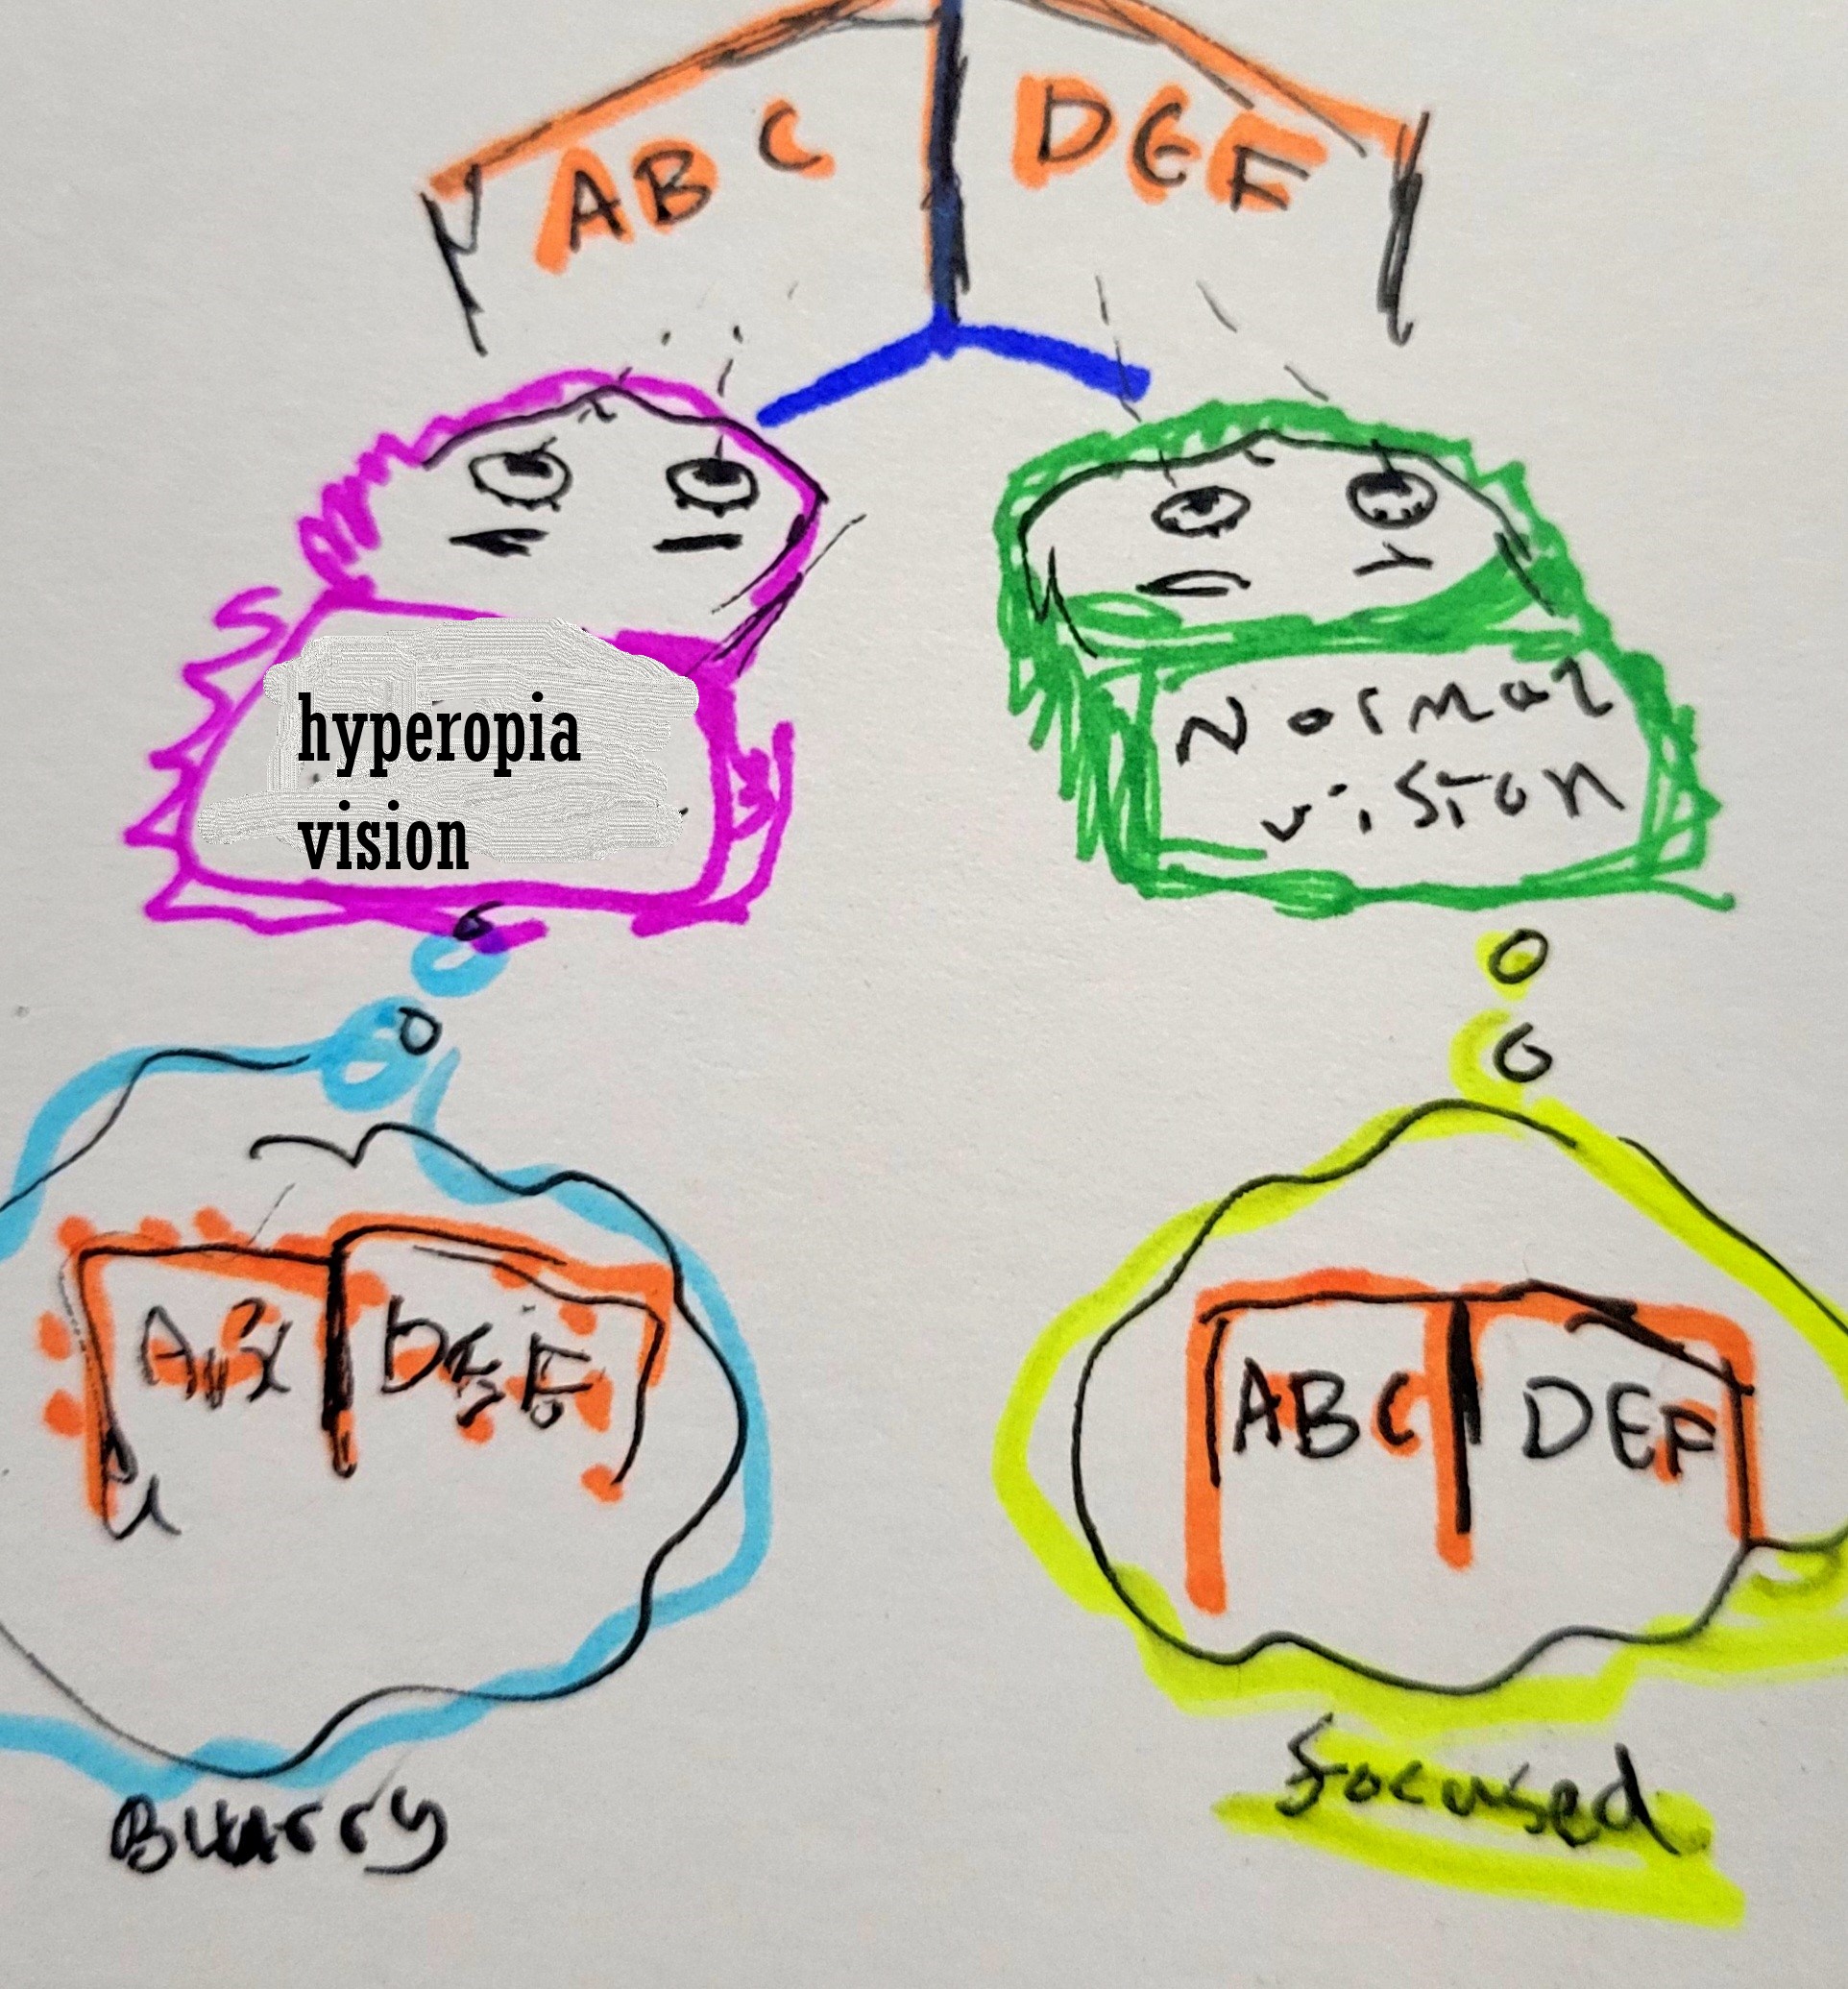 ABC DEF
hyperopia
vision
Normal
vision
DEF
ABC DEF
Blurry
focused